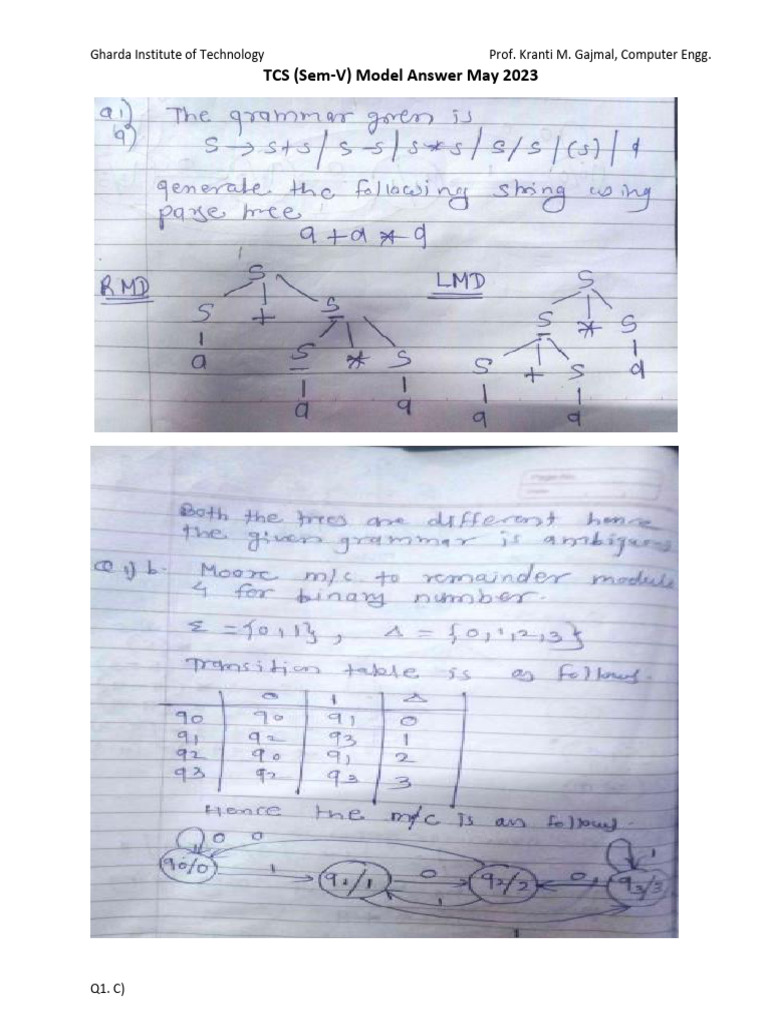 Gharda Institute of Technology Prof. Kranti M. Gajmal, Computer Engg.
TCS (Sem-V) Model Answer May 2023
Q1) The grammar given is
a) S → S+S / S-S / S*S / S/S / (S) / a
generate the following string using
parse tree
a + a * a
RMD LMD
S S
S + S S * S
a S * S S + S a
a a a a
Both the trees are different hence
the given grammar is ambiguous
Q1) b. Moore m/c to remainder module
4 for binary number.
Σ = {0,1}, Δ = {0,1,2,3}
Transition table is as follows.
0 1 Δ
q0 q0 q1 0
q1 q2 q3 1
q2 q0 q1 2
q3 q2 q3 3
Hence the m/c is as follows.
0 0 1
q0/0 1 q1/1 0 q2/2 0 q3/3
1
1
Q1. C)